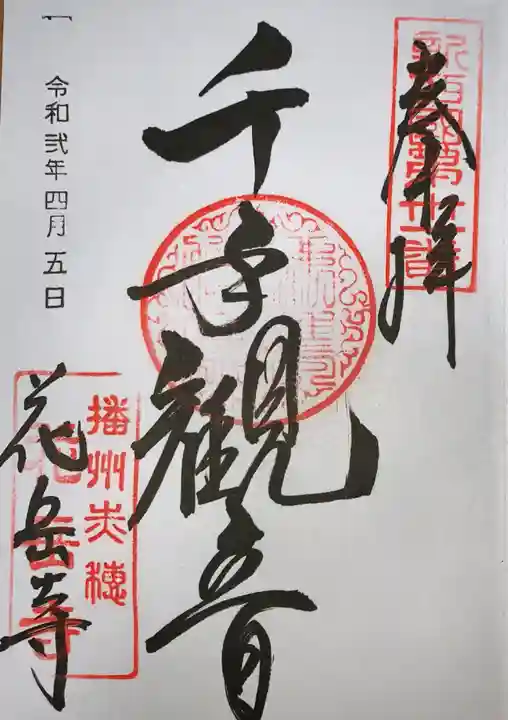 奉拝
千手観音
令和弐年四月五日
播州赤穂
花岳寺
花岳寺